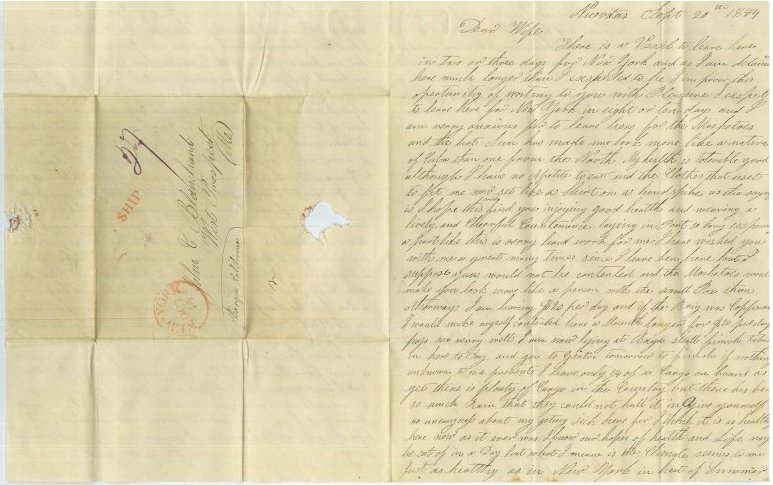 27
SHIP
NEW YORK
John C Blanchard
West Prospect
(Me)
Barque
Nuevitas Sept 20th 1849
Dear Wife
There is a Vessel to leave here
in two or three days for New York and as I am
here much longer than I expected to be I improve this
opertunity of writing to you I expect
to leave here for New York in eight or ten days and I
am verry anxious for to leave here for the Musketoes
and the hot Sun has made me look more like a native
of Cuba than one from the North My health is tolerable good
although I have no appetite to eat and the Clothes that used
to fit me now set like a Shirt on a hand spike as the saying
is I hope this may find you enjoying good health and wearing a
lively and Cheerful Countenance laying in Port so long
a port like this is verry hard work for me I have wished you
with me a great many times since I have been here but I
suppose you would not be contented and the Musketoes would
make you look more like a person with the small Pox than
otherways I am per day and if the Brig was Coppered
I would make myself contented here a Month longer for per day
pays me verry well I am now lying at
in here to day and go to tomorrow to finish if nothing
unknown to me prevents I have only of a Cargo on board as
yet there is plenty of Cargo in the Country but there has been
so much Rain that they could not hall it in Give yourself
no uneasyness about my geting sick here for I think it is as healthy
here now as it ever was I know our hopes of health and Life may
be cut of in a Day but what I mean is the Climate seems to me
Just as healthy as in New York in heat of Summer